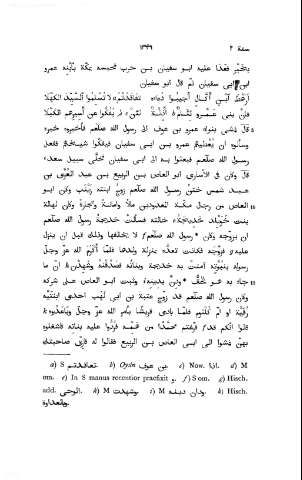 سنة ٢ ١٣٤٩
بخير فعدا عليه ابو سفيان بن حرب فحبسه بمكة بابنه عمرو
ابن ابى سفيان ثم قال ابو سفيان
أرهط ابن أكّال أجيبوا دعاءه تعاقدتم لا تسلموا السيد الكهلا
فإن بنى عمرو لئام أذلة لئن لم يفكوا عن أسيرهم الكبلا
قال فمشى بنو عمرو بن عوف الى رسول الله صلعم فأخبروه خبره
وسألوه ان يعطيهم عمرو بن ابى سفيان فيفكوا شيخهم ففعل
رسول الله صلعم فبعثوا به الى ابى سفيان فخلّى سبيل سعد
قال وكان فى الأسارى ابو العاص بن الربيع بن عبد العزّى بن
عبد شمس ختن رسول الله صلعم زوج ابنته زينب وكان ابو
العاص من رجال مكّة المعدودين مالا وأمانة وتجارة وكان لهالة
بنت خويلد خديجة خالته فسألت خديجة رسول الله صلعم
ان يزوّجه وكان رسول الله صلعم لا يخالفها وذلك قبل ان ينزل
عليه فزوّجه فكانت تعدّه بمنزلة ولدها فلما أكرم الله عزّ وجلّ
رسوله بنبوّته آمنت به خديجة وبناته فصدّقنه وشهدن h انّ ما
جاء به هو الحقّ ودنّ بدينه i وثبت ابو العاص على شركه
وكان رسول الله صلعم قد زوّج عتبة بن ابى لهب احدى ابنتيه
رقيّة او أمّ كلثوم فلما بادى قريشا بأمر الله عزّ وجلّ وباعدوه k
قالوا انّكم قد فرّغتم محمّدا من همّه فردّوا عليه بناته فاشغلوه
بهنّ فمشوا الى ابى العاص بن الربيع فقالوا له فارق صاحبتك
a) S تعاقدتم. b) Codd. بن عوف. c) Now. اذا. d) M
om. e) In S manus recentior praefixit و. f) S om. g) Hisch.
add. الوحى. h) M وشهدت. i) M ودان دينه. k) Hisch.
وبالعداوة.